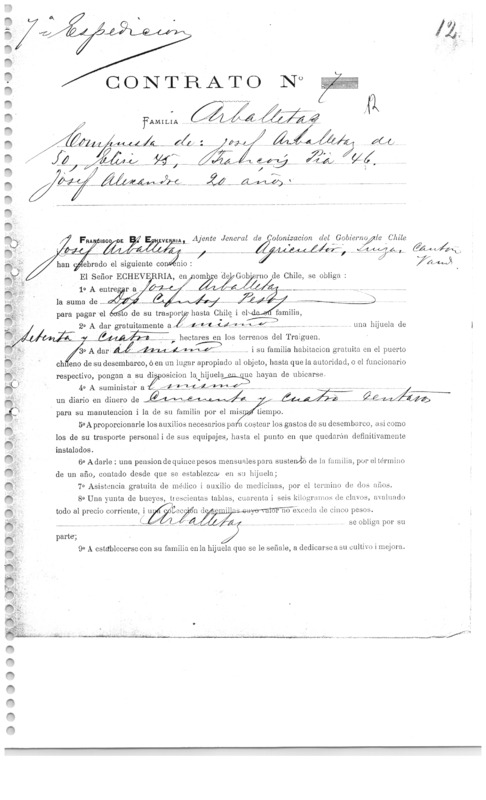 7ª Expedicion
12.
CONTRATO Nº 7
12
FAMILIA Arballetaz
Compuesta de: Josef Arballetaz de
50, Elise 45, François Pia 46.
Josef Alexandre 20 años.
FRANCISCO DE B. ECHEVERRIA, Ajente Jeneral de Colonizacion del Gobierno de Chile
Josef Arballetaz, Agricultor, Suiza, Canton
Vaud
han celebrado el siguiente convenio:
El Señor ECHEVERRIA, en nombre del Gobierno de Chile, se obliga:
1º A entregar a Josef Arballetaz
la suma de Dos Cientos Pesos
para pagar el costo de su trasporte hasta Chile i el de su familia,
2º A dar gratuitamente a l mismo una hijuela de
setenta y cuatro hectares en los terrenos del Traiguen.
3º A dar al mismo i su familia habitacion gratuita en el puerto
chileno de su desembarco, ó en un lugar apropiado al objeto, hasta que la autoridad, o el funcionario
respectivo, pongan a su disposicion la hijuela en que hayan de ubicarse.
4º A suministar a l mismo
un diario en dinero de cincuenta y cuatro sentavos
para su manutencion i la de su familia por el mismo tiempo.
5º A proporcionarle los auxilios necesarios para costear los gastos de su desembarco, asi como
los de su trasporte personal i de sus equipajes, hasta el punto en que quedarán definitivamente
instalados.
6º A darle; una pension de quince pesos mensuales para sustento de la familia, por el término
de un año, contado desde que se establezca en su hijuela;
7º Asistencia gratuita de médico i auxilio de medicinas, por el termino de dos años.
8º Una yunta de bueyes, trescientas tablas, cuarenta i seis kilógramos de clavos, avaluado
todo al precio corriente, i una coleccion de semillas cuyo valor no exceda de cinco pesos.
Arballetaz se obliga por su
parte;
9º A establecerse con su familia en la hijuela que se le señale, a dedicarse a su cultivo i mejora.